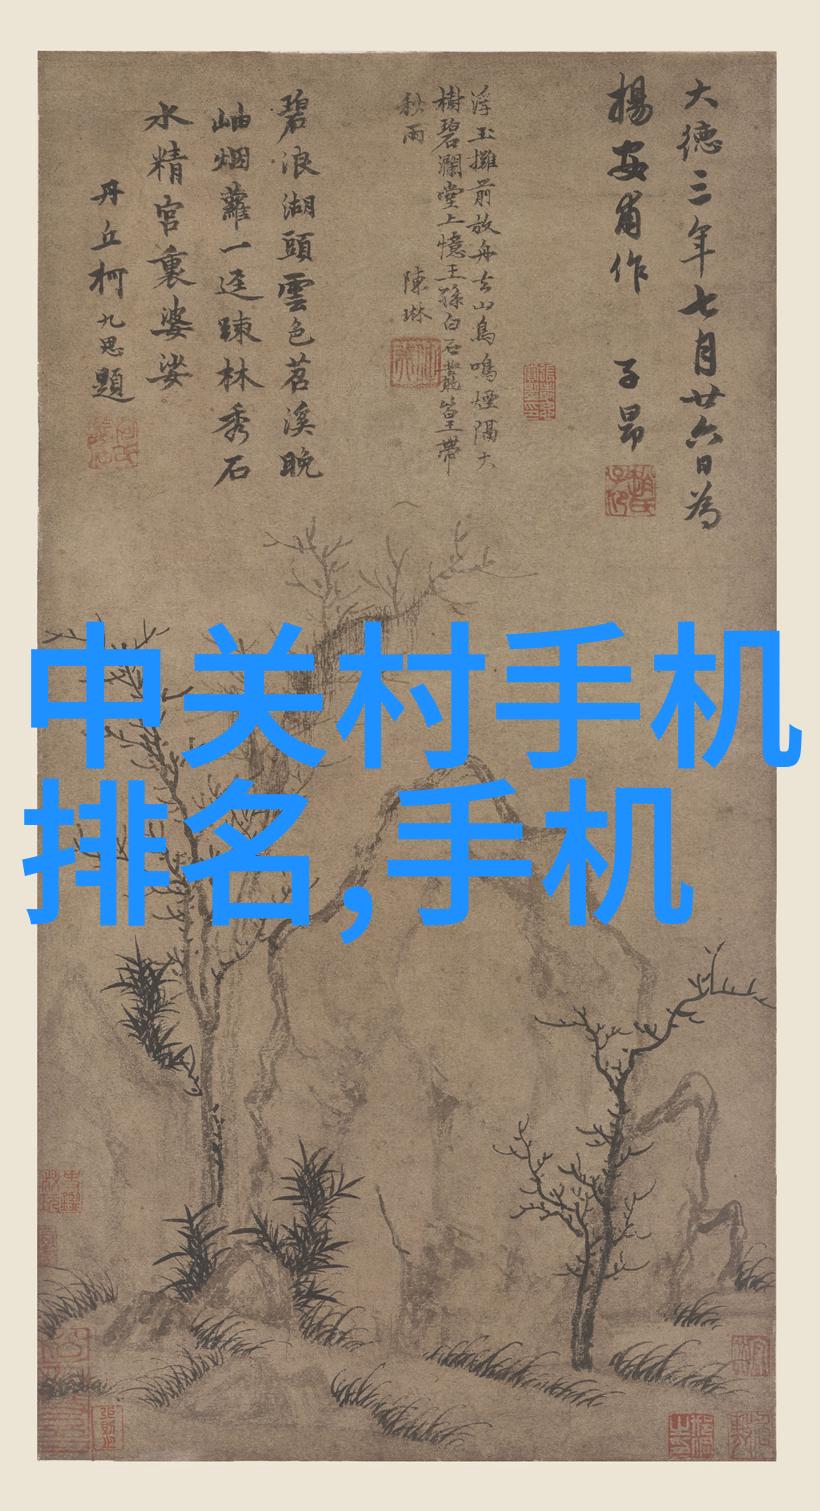 大德三年七月廿六日為
楊安甫作 子昂
浮玉攤前放舟去山鳥鳴煙隔大
樹碧瀾堂上憶王孫白石叢篁帶
秋雨 陳琳
碧浪湖頭雲色苕溪晚
岫烟蘿一迳踈林秀石
水精宮裏婆娑
丹丘柯九思題
中关村手机
排名,手机